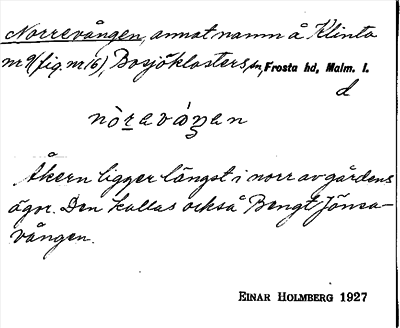 Norrevången, annat namn å Klinta
nr 9 (fig. nr 16), Bosjöklosters sn, Frosta hd, Malm. l.
d
nòraváŋan
Åkern ligger längst i norr av gårdens
ägor. Den kallas också Bengt Jönsa-
vången.
EINAR HOLMBERG 1927